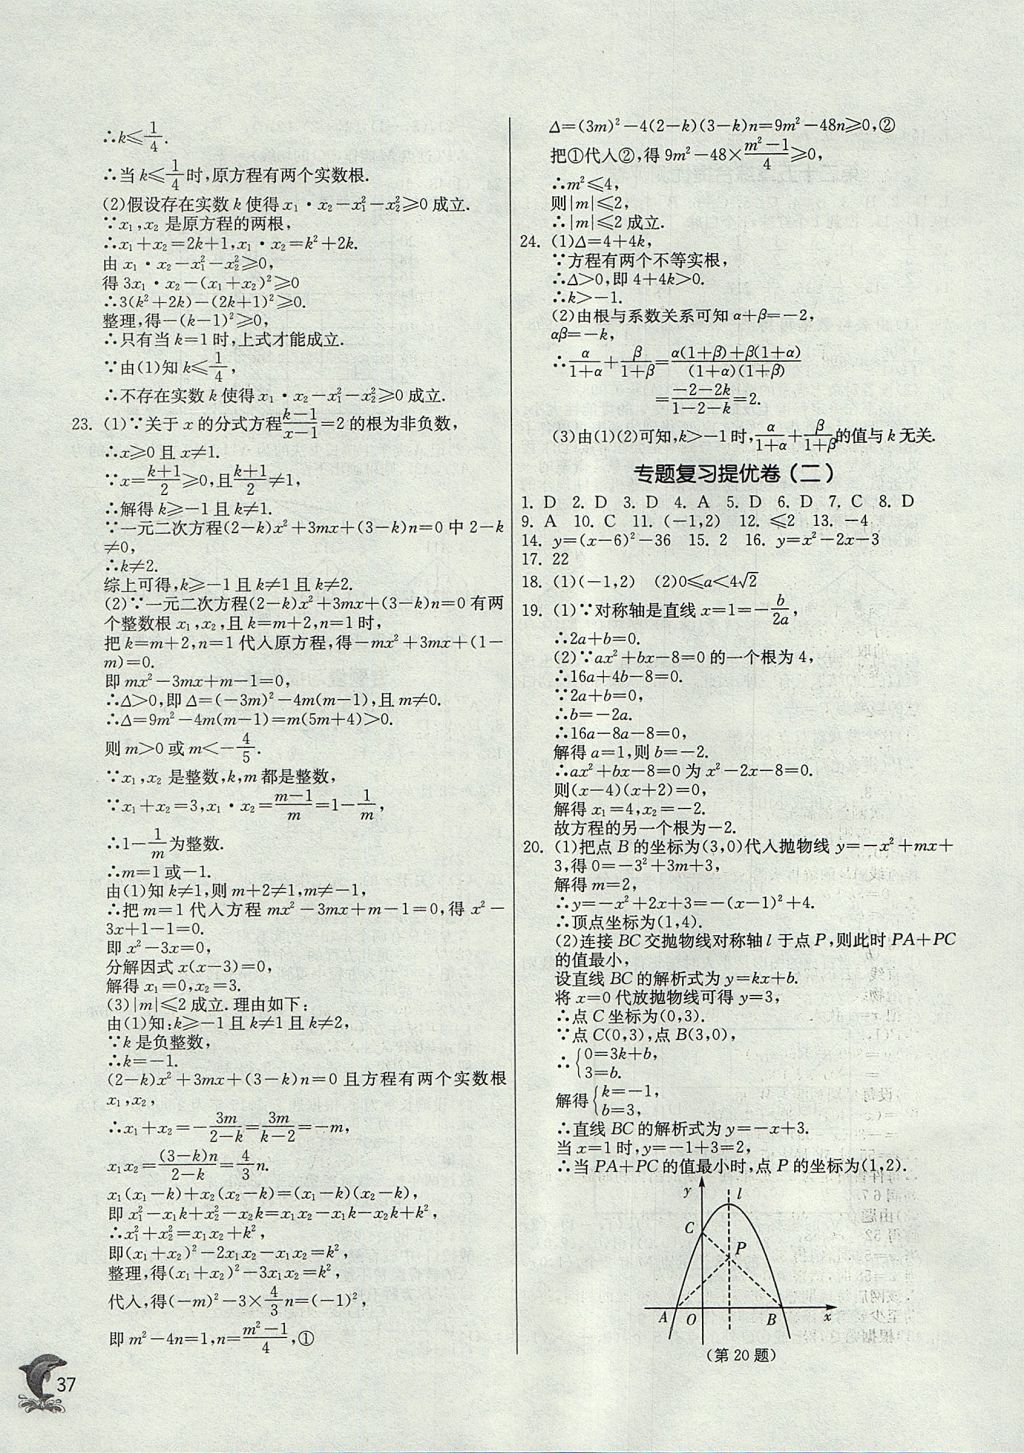 ∴k≤1/4.
∴当 k≤1/4时,原方程有两个实数根.
(2)假设存在实数 k 使得 x₁·x₂-x₁²-x₂²≥0 成立.
∵x₁,x₂ 是原方程的两根,
∴x₁+x₂=2k+1,x₁·x₂=k²+2k.
由 x₁·x₂-x₁²-x₂²≥0,
得 3x₁·x₂-(x₁+x₂)²≥0
∴3(k²+2k)-(2k+1)²≥0.
整理,得-(k-1)²≥0,
∴只有当 k=1 时,上式才能成立.
∵由(1)知 k≤1/4,
∴不存在实数 k 使得 x₁·x₂-x₁²-x₂²≥0 成立.
23. (1)∵关于 x 的分式方程(k-1)/(x-1)=2 的根为非负数,
∴x≥0 且 x≠1.
∵x=(k+1)/2≥0,且(k+1)/2≠1,
∴解得 k≥-1 且 k≠1.
∵一元二次方程(2-k)x²+3mx+(3-k)n=0 中 2-k
≠0,
∴k≠2.
综上可得,k≥-1 且 k≠1 且 k≠2.
(2)∵一元二次方程(2-k)x²+3mx+(3-k)n=0 有两
个整数根 x₁,x₂,且 k=m+2,n=1 时,
把 k=m+2,n=1 代入原方程,得-mx²+3mx+(1-
m)=0.
即 mx²-3mx+m-1=0,
∴Δ>0,即 Δ=(-3m)²-4m(m-1),且 m≠0.
∴Δ=9m²-4m(m-1)=m(5m+4)>0.
则 m>0 或 m<-4/5.
∵x₁,x₂ 是整数,k,m 都是整数,
∵x₁+x₂=3,x₁·x₂=(m-1)/m=1-1/m,
∴1-1/m为整数.
∴m=1 或-1.
由(1)知 k≠1,则 m+2≠1,m≠-1,
∴把 m=1 代入方程 mx²-3mx+m-1=0,得 x²-
3x+1-1=0.
即 x²-3x=0,
分解因式 x(x-3)=0,
解得 x₁=0,x₂=3.
(3)|m|≤2 成立.理由如下:
由(1)知:k≥-1 且 k≠1 且 k≠2,
∵k 是负整数,
∴k=-1.
(2-k)x²+3mx+(3-k)n=0 且方程有两个实数根
x₁,x₂,
∴x₁+x₂=-3m/(2-k)=3m/(k-2)=-m,
x₁x₂=(3-k)n/(2-k)=4/3 n.
x₁(x₁-k)+x₂(x₂-k)=(x₁-k)(x₂-k),
即 x₁²-x₁k+x₂²-x₂k=x₁x₂-x₁k-x₂k+k²,
∴x₁²+x₂²=x₁x₂+k²,
即(x₁+x₂)²-2x₁x₂-x₁x₂=k²,
整理,得(x₁+x₂)²-3x₁x₂=k²,
代入,得(-m)²-3×4/3 n=(-1)²,
即 m²-4n=1,n=(m²-1)/4,①
37
Δ=(3m)²-4(2-k)(3-k)n=9m²-48n≥0,②
把①代入②,得 9m²-48×(m²-1)/4≥0,
∴m²≤4,
则|m|≤2,
∴|m|≤2 成立.
24. (1)Δ=4+4k,
∵方程有两个不等实根,
∴Δ>0,即 4+4k>0.
∴k>-1.
(2)由根与系数关系可知 α+β=-2,
αβ=-k,
∴α/(1+α)+β/(1+β)=(α(1+β)+β(1+α))/((1+α)(1+β))
=(-2-2k)/(1-2-k)=2.
(3)由(1)(2)可知,k>-1 时,α/(1+α)+β/(1+β)的值与 k 无关.
专题复习提优卷(二)
1. D 2. D 3. D 4. A 5. D 6. D 7. C 8. D
9. A 10. C 11. (-1,2) 12. ≤2 13. -4
14. y=(x-6)²-36 15. 2 16. y=x²-2x-3
17. 22
18. (1)(-1,2) (2)0≤a<4√2
19. (1)∵对称轴是直线 x=1=-b/2a,
∴2a+b=0.
(2)∵ax²+bx-8=0 的一个根为 4,
∴16a+4b-8=0.
∵2a+b=0,
∴b=-2a.
∴16a-8a-8=0,
解得 a=1,则 b=-2.
∴ax²+bx-8=0 为 x²-2x-8=0.
则(x-4)(x+2)=0,
解得 x₁=4,x₂=-2.
故方程的另一个根为-2.
20. (1)把点 B 的坐标为(3,0)代入抛物线 y=-x²+mx+
3,得 0=-3²+3m+3,
解得 m=2,
∴y=-x²+2x+3=-(x-1)²+4.
∴顶点坐标为(1,4).
(2)连接 BC 交抛物线对称轴 l 于点 P,则此时 PA+PC
的值最小,
设直线 BC 的解析式为 y=kx+b.
将 x=0 代放抛物线可得 y=3,
∴点 C 坐标为(0,3).
∵点 C(0,3),点 B(3,0),
∴{0=3k+b,
3=b.
解得{k=-1,
b=3,
∴直线 BC 的解析式为 y=-x+3.
当 x=1 时,y=-1+3=2,
∴当 PA+PC 的值最小时,点 P 的坐标为(1,2).
y l
C
P
A O B x
(第 20 题)